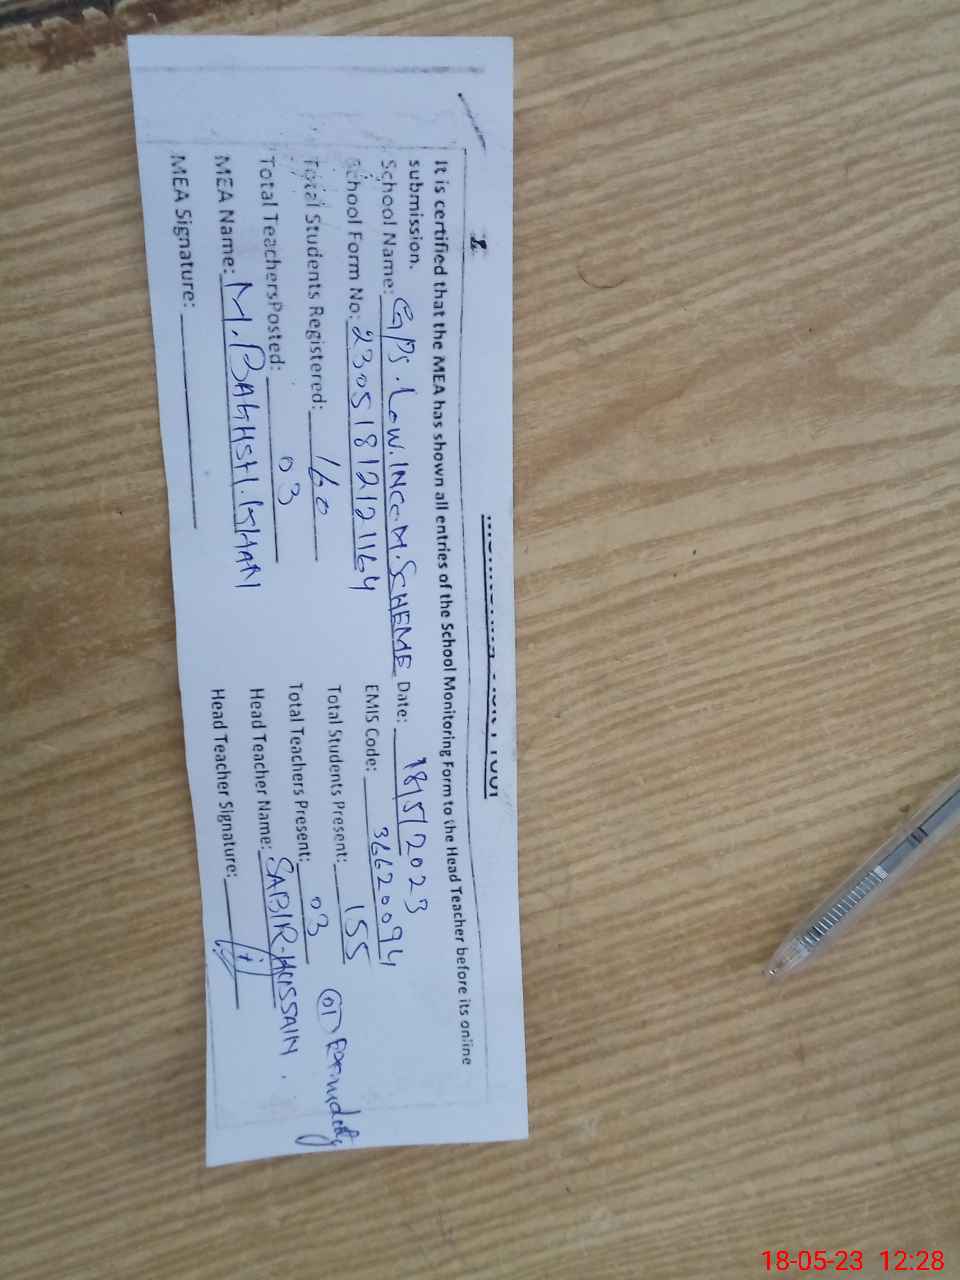 It is certified that the MEA has shown all entries of the School Monitoring Form to the Head Teacher before its online
submission.
School Name: GPS. LOW. INCOM. SCHEME Date: 18/5/2023
School Form No: 23051812121164 EMIS Code: 36620094
Total Students Registered: 160 Total Students Present: 155
Total TeachersPosted: 03 Total Teachers Present: 03 01
MEA Name: M. BAKHSH. KHAN Head Teacher Name: SABIR-HUSSAIN.
MEA Signature: Head Teacher Signature:
18-05-23 12:28